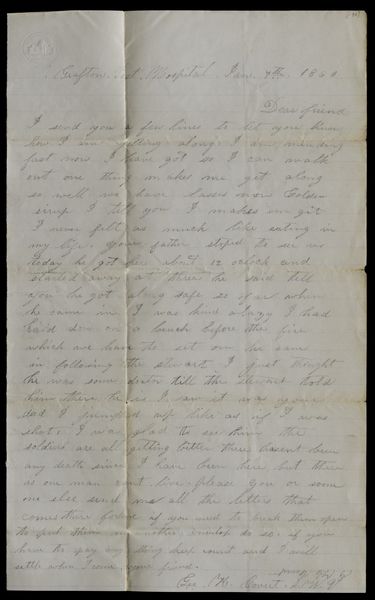 Grafton Hospital Jan. 7th
Dear friend
I send you a few lines to let you know
how I am getting along I am mending
fast now I have got so I can walk
out one thing makes me get along
so well we have lasses more Golden
sirup I tell you I makes um git
I never felt as much like eating in
my life. your father stoped to see us
today he got here about 12 oclock and
started away at three he said tell
you he got along safe so far when
he came in I was kind a lazy I had
laid down on a bench before the fire
which we have to set on he came
in following the stewart I just thought
he was some doctor till the stewart told
him there he is I saw it was your
dad I jumped up like as if I was
shot. I was glad to see him the
soldiers are all getting better there havent been
any death since I have been here but there
is one man cant live please you or some
one else send me all the letters that
comes there for me if you need to break them open
to put them in another envelop do so. if you
have to pay any thing keep count and I will
settle when I come your friend.
Covert